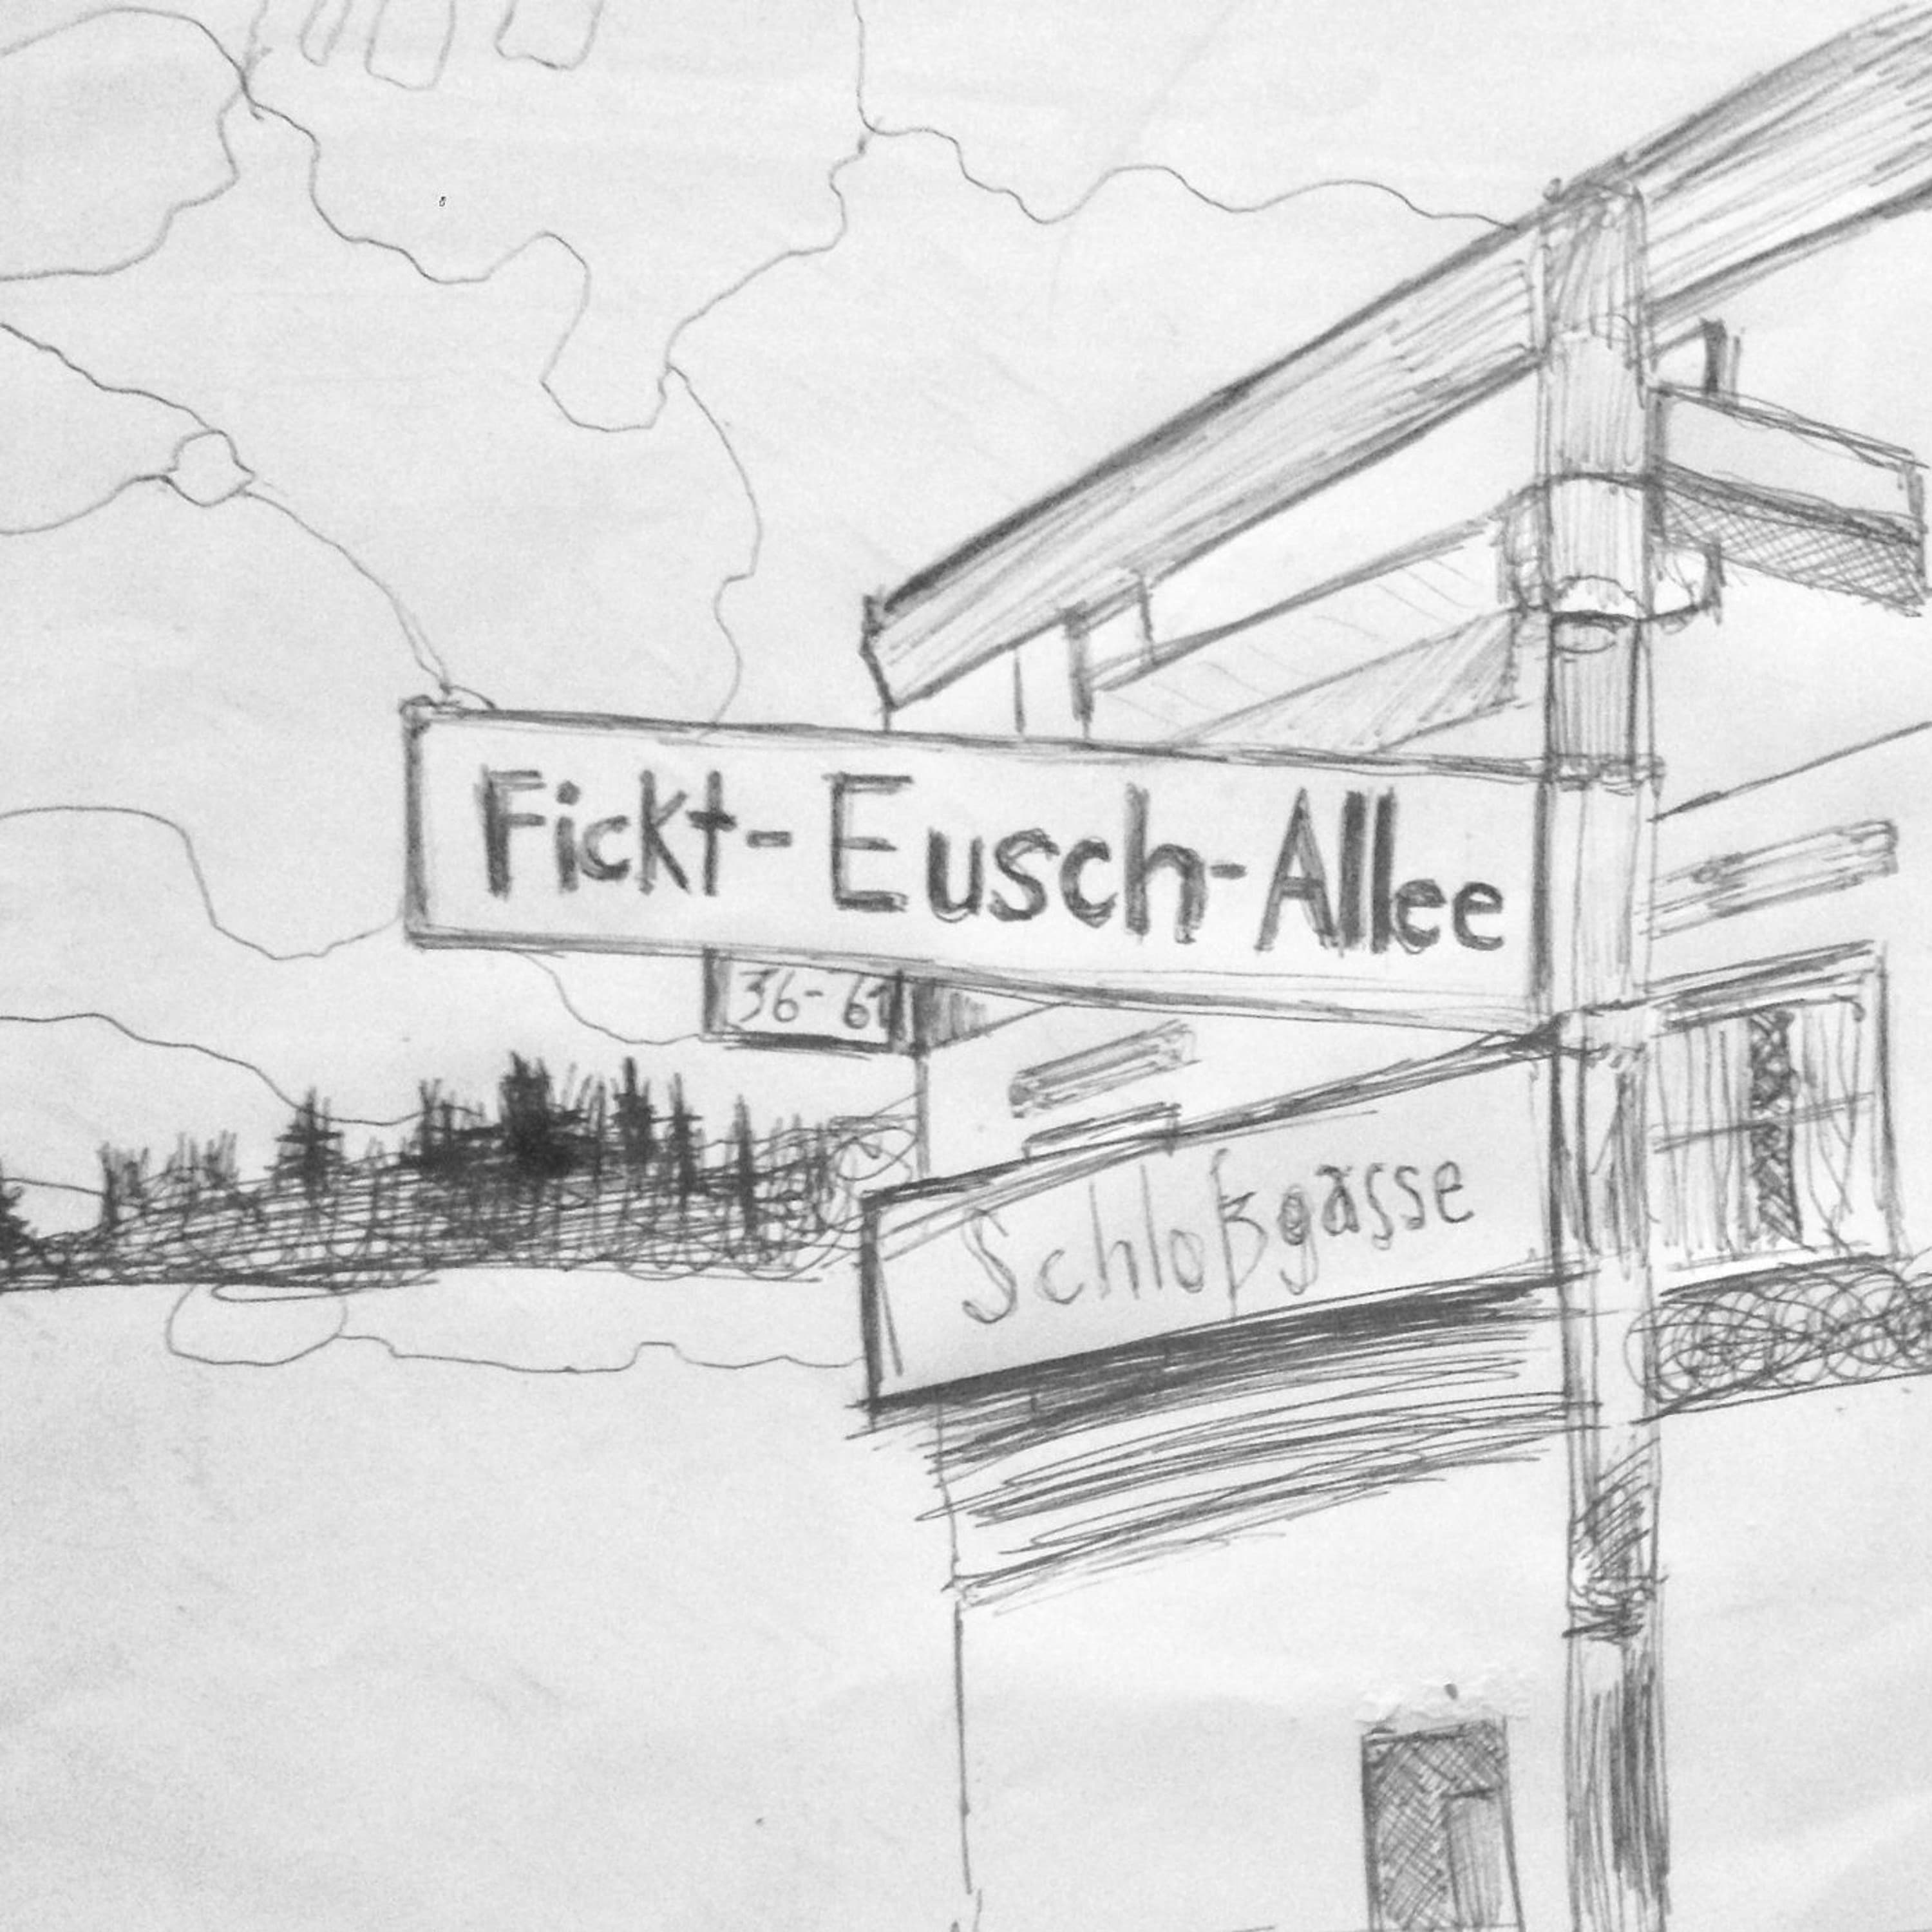 Fickt-Eusch-Allee
36-61
Schloßgasse